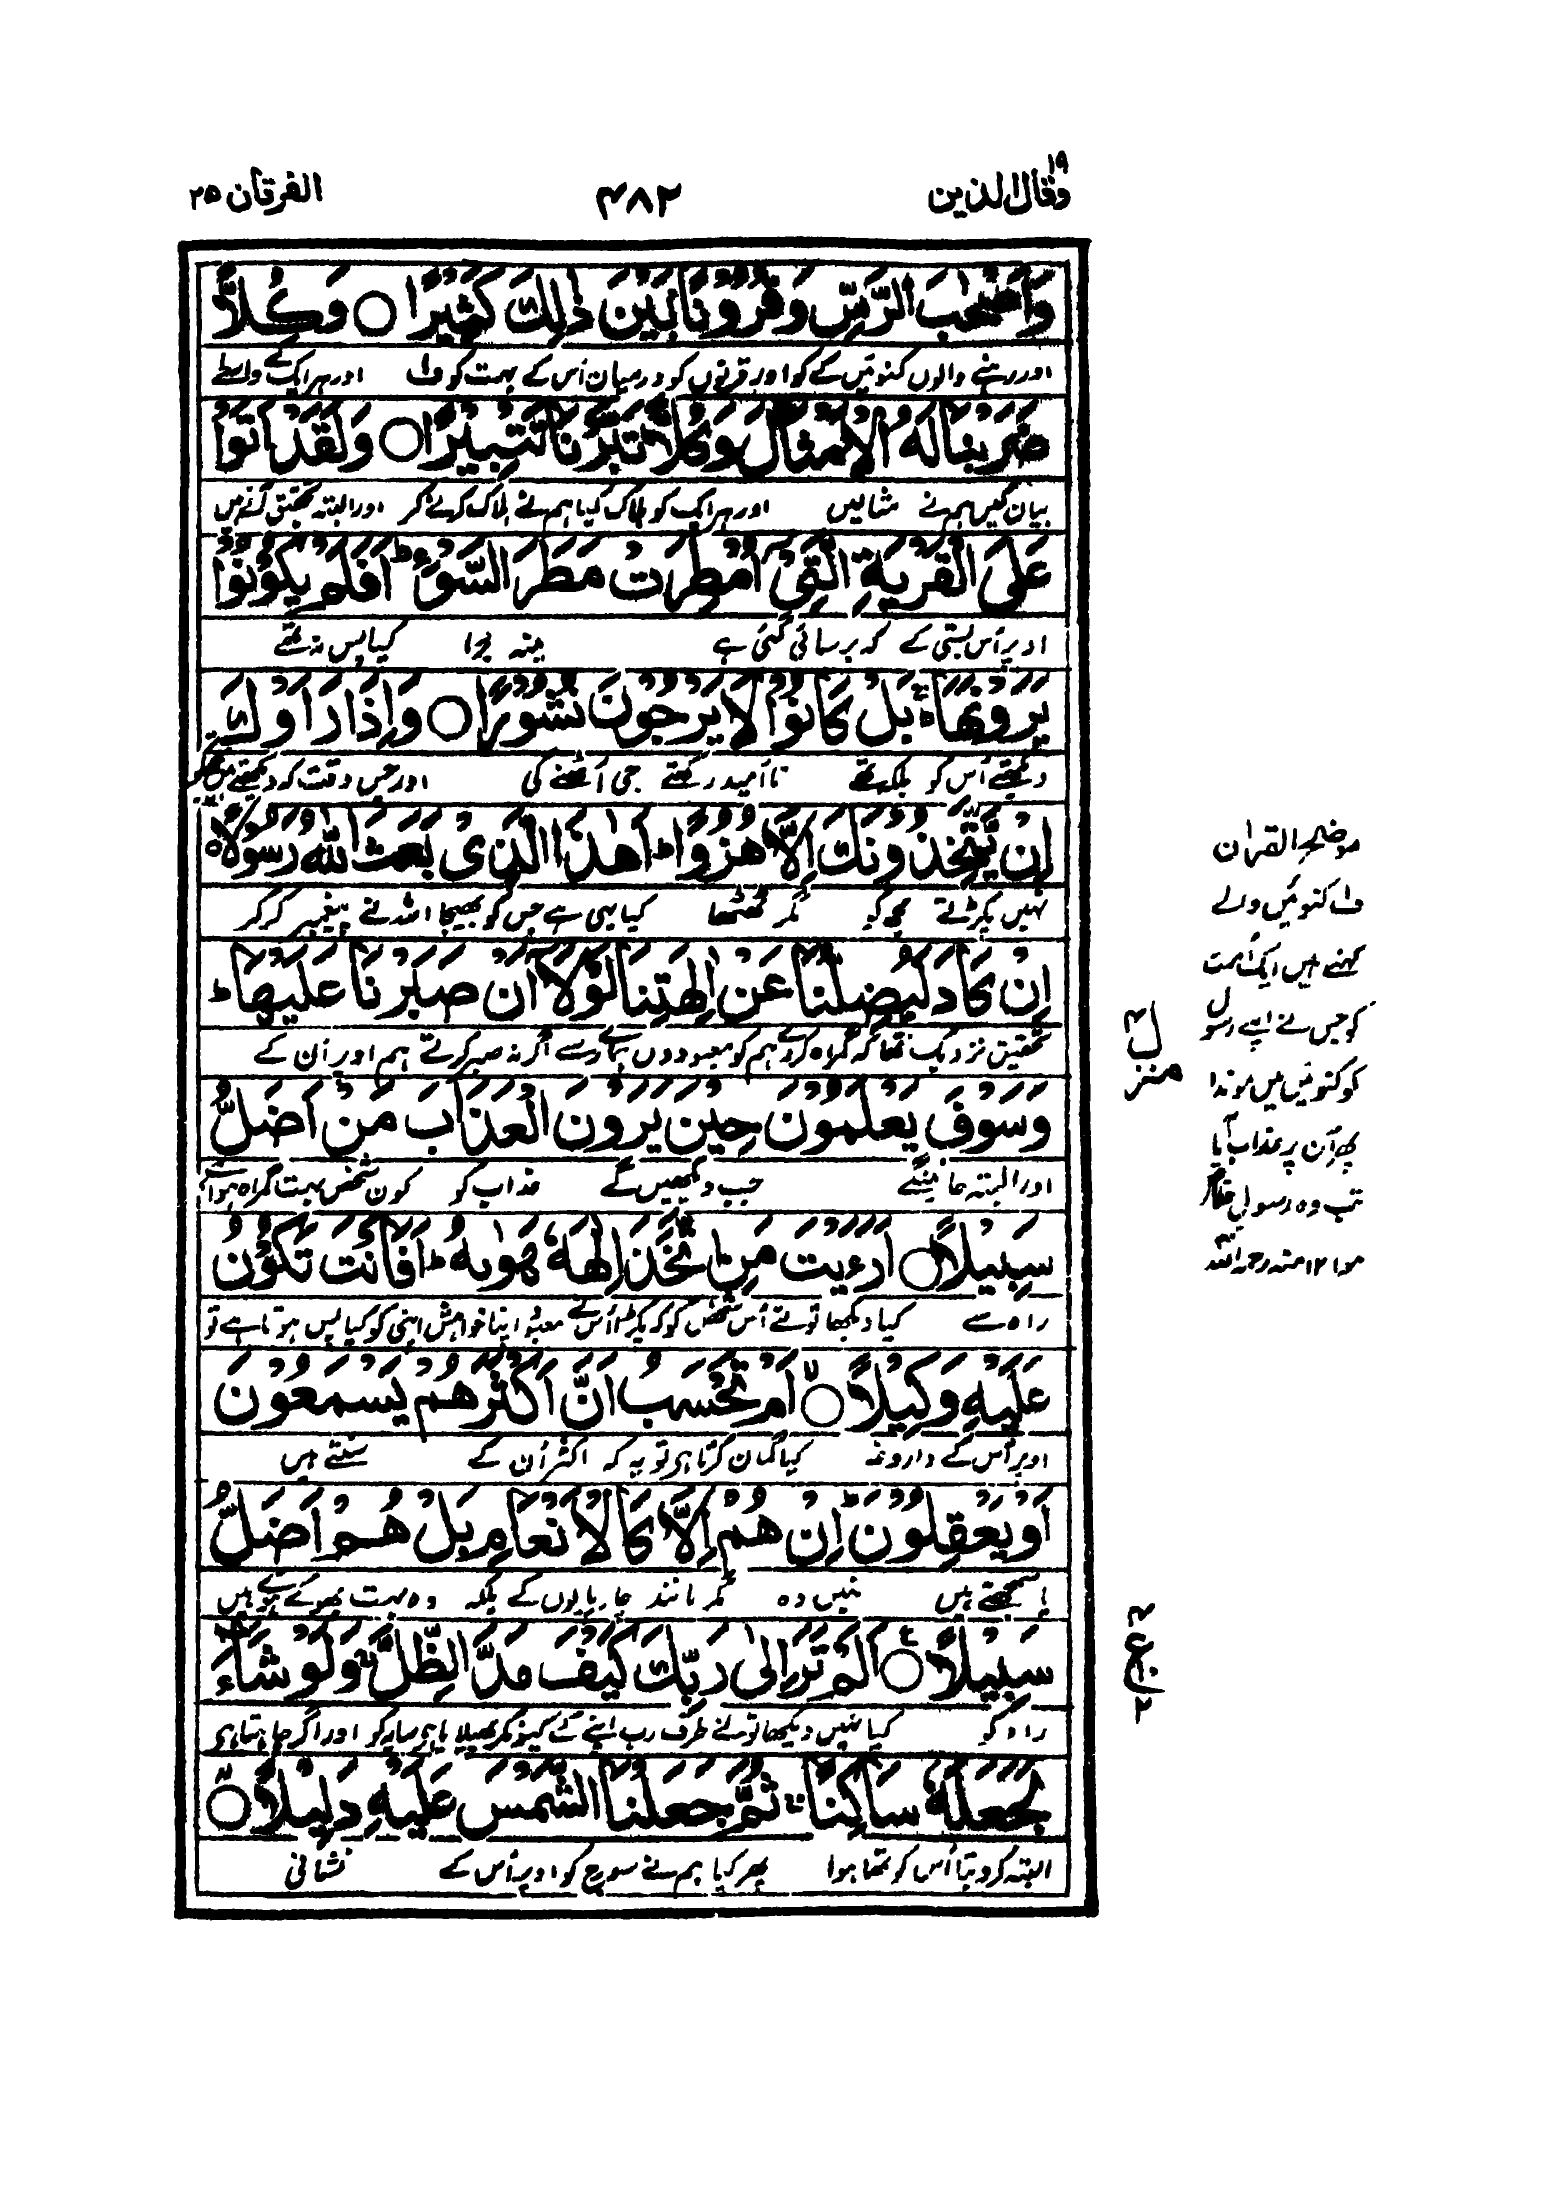 وقال الذین ۱۹
۴۸۲
الفرقان ۲۵
وَاَصْحٰبَ الرَّسِّ وَقُرُوْنًۢا بَیْنَ ذٰلِكَ كَثِیْرًا ○ وَكُلًّا
اور رہنے والوں کنوئیں کے کو اور قرنوں کو درمیان اُس کے بہت کو ف۱ اور ہر ایک کے واسطے
ضَرَبْنَا لَهُ الْاَمْثَالَ وَكُلًّا تَبَّرْنَا تَتْبِیْرًا ○ وَلَقَدْ اَتَوْا
بیان کیں ہم نے مثالیں اور ہر ایک کو ہلاک کیا ہم نے ہلاک کرنے کر اور البتہ تحقیق آئے ہیں
عَلَی الْقَرْیَةِ الَّتِیْۤ اُمْطِرَتْ مَطَرَ السَّوْءِ ؕ اَفَلَمْ یَكُوْنُوْا
اوپر اُس بستی کے کہ برسائی گئی ہے مینہ بُرا کیا پس نہ تھے
یَرَوْنَهَا ۚ بَلْ كَانُوْا لَا یَرْجُوْنَ نُشُوْرًا ○ وَاِذَا رَاَوْكَ
دیکھتے اُس کو بلکہ تھے نا اُمید رکھتے جی اُٹھنے کی اور جس وقت کہ دیکھتے ہیں تجھ کو
اِنْ یَّتَّخِذُوْنَكَ اِلَّا هُزُوًا ؕ اَهٰذَا الَّذِیْ بَعَثَ اللّٰهُ رَسُوْلًا ○
نہیں پکڑتے تجھ کو مگر ٹھٹھا کیا یہی ہے جس کو بھیجا اللہ نے پیغمبر کر کر
اِنْ كَادَ لَیُضِلُّنَا عَنْ اٰلِهَتِنَا لَوْلَاۤ اَنْ صَبَرْنَا عَلَیْهَا ؕ
تحقیق نزدیک تھا کہ گمراہ کر دے ہم کو معبودوں ہمارے سے اگر نہ صبر کرتے ہم اوپر اُن کے
وَسَوْفَ یَعْلَمُوْنَ حِیْنَ یَرَوْنَ الْعَذَابَ مَنْ اَضَلُّ
اور البتہ جانینگے جب دیکھیں گے عذاب کو کون شخص بہت گمراہ ہوا ہے
سَبِیْلًا ○ اَرَءَیْتَ مَنِ اتَّخَذَ اِلٰهَهٗ هَوٰىهُ ؕ اَفَاَنْتَ تَكُوْنُ
راہ سے کیا دیکھا تو نے اُس شخص کو کہ پکڑا اُس نے معبود اپنا خواہش اپنی کو کیا پس ہوتا ہے تو
عَلَیْهِ وَكِیْلًا ○ اَمْ تَحْسَبُ اَنَّ اَكْثَرَهُمْ یَسْمَعُوْنَ
اوپر اُس کے داروغہ کیا گمان کرتا ہے تو یہ کہ اکثر اُن کے سنتے ہیں
اَوْ یَعْقِلُوْنَ ؕ اِنْ هُمْ اِلَّا كَالْاَنْعَامِ بَلْ هُمْ اَضَلُّ
یا سمجھتے ہیں نہیں وہ مگر مانند چارپایوں کے بلکہ وہ بہت بھولے ہوئے ہیں
سَبِیْلًا ○ اَلَمْ تَرَ اِلٰی رَبِّكَ كَیْفَ مَدَّ الظِّلَّ ۚ وَلَوْ شَآءَ
راہ کو کیا نہیں دیکھا تو نے طرف رب اپنے کے کیونکر پھیلایا ہے سایہ کو اور اگر چاہتا ہے
لَجَعَلَهٗ سَاكِنًا ۚ ثُمَّ جَعَلْنَا الشَّمْسَ عَلَیْهِ دَلِیْلًا ○
البتہ کر دیتا اُس کو تھما ہوا پھر کیا ہم نے سورج کو اوپر اُس کے نشانی
موضح القراٰن
ف۱ کنوئیں والے
کہتے ہیں ایک اُمت
کو جس نے اپنے رسول
کو کنوئیں میں موندا
پھر اُن پر عذاب آیا
تب وہ رسول
ہوا ۱۲ منہ رحمہ اللہ
منزل ۴
۴
ع
۲